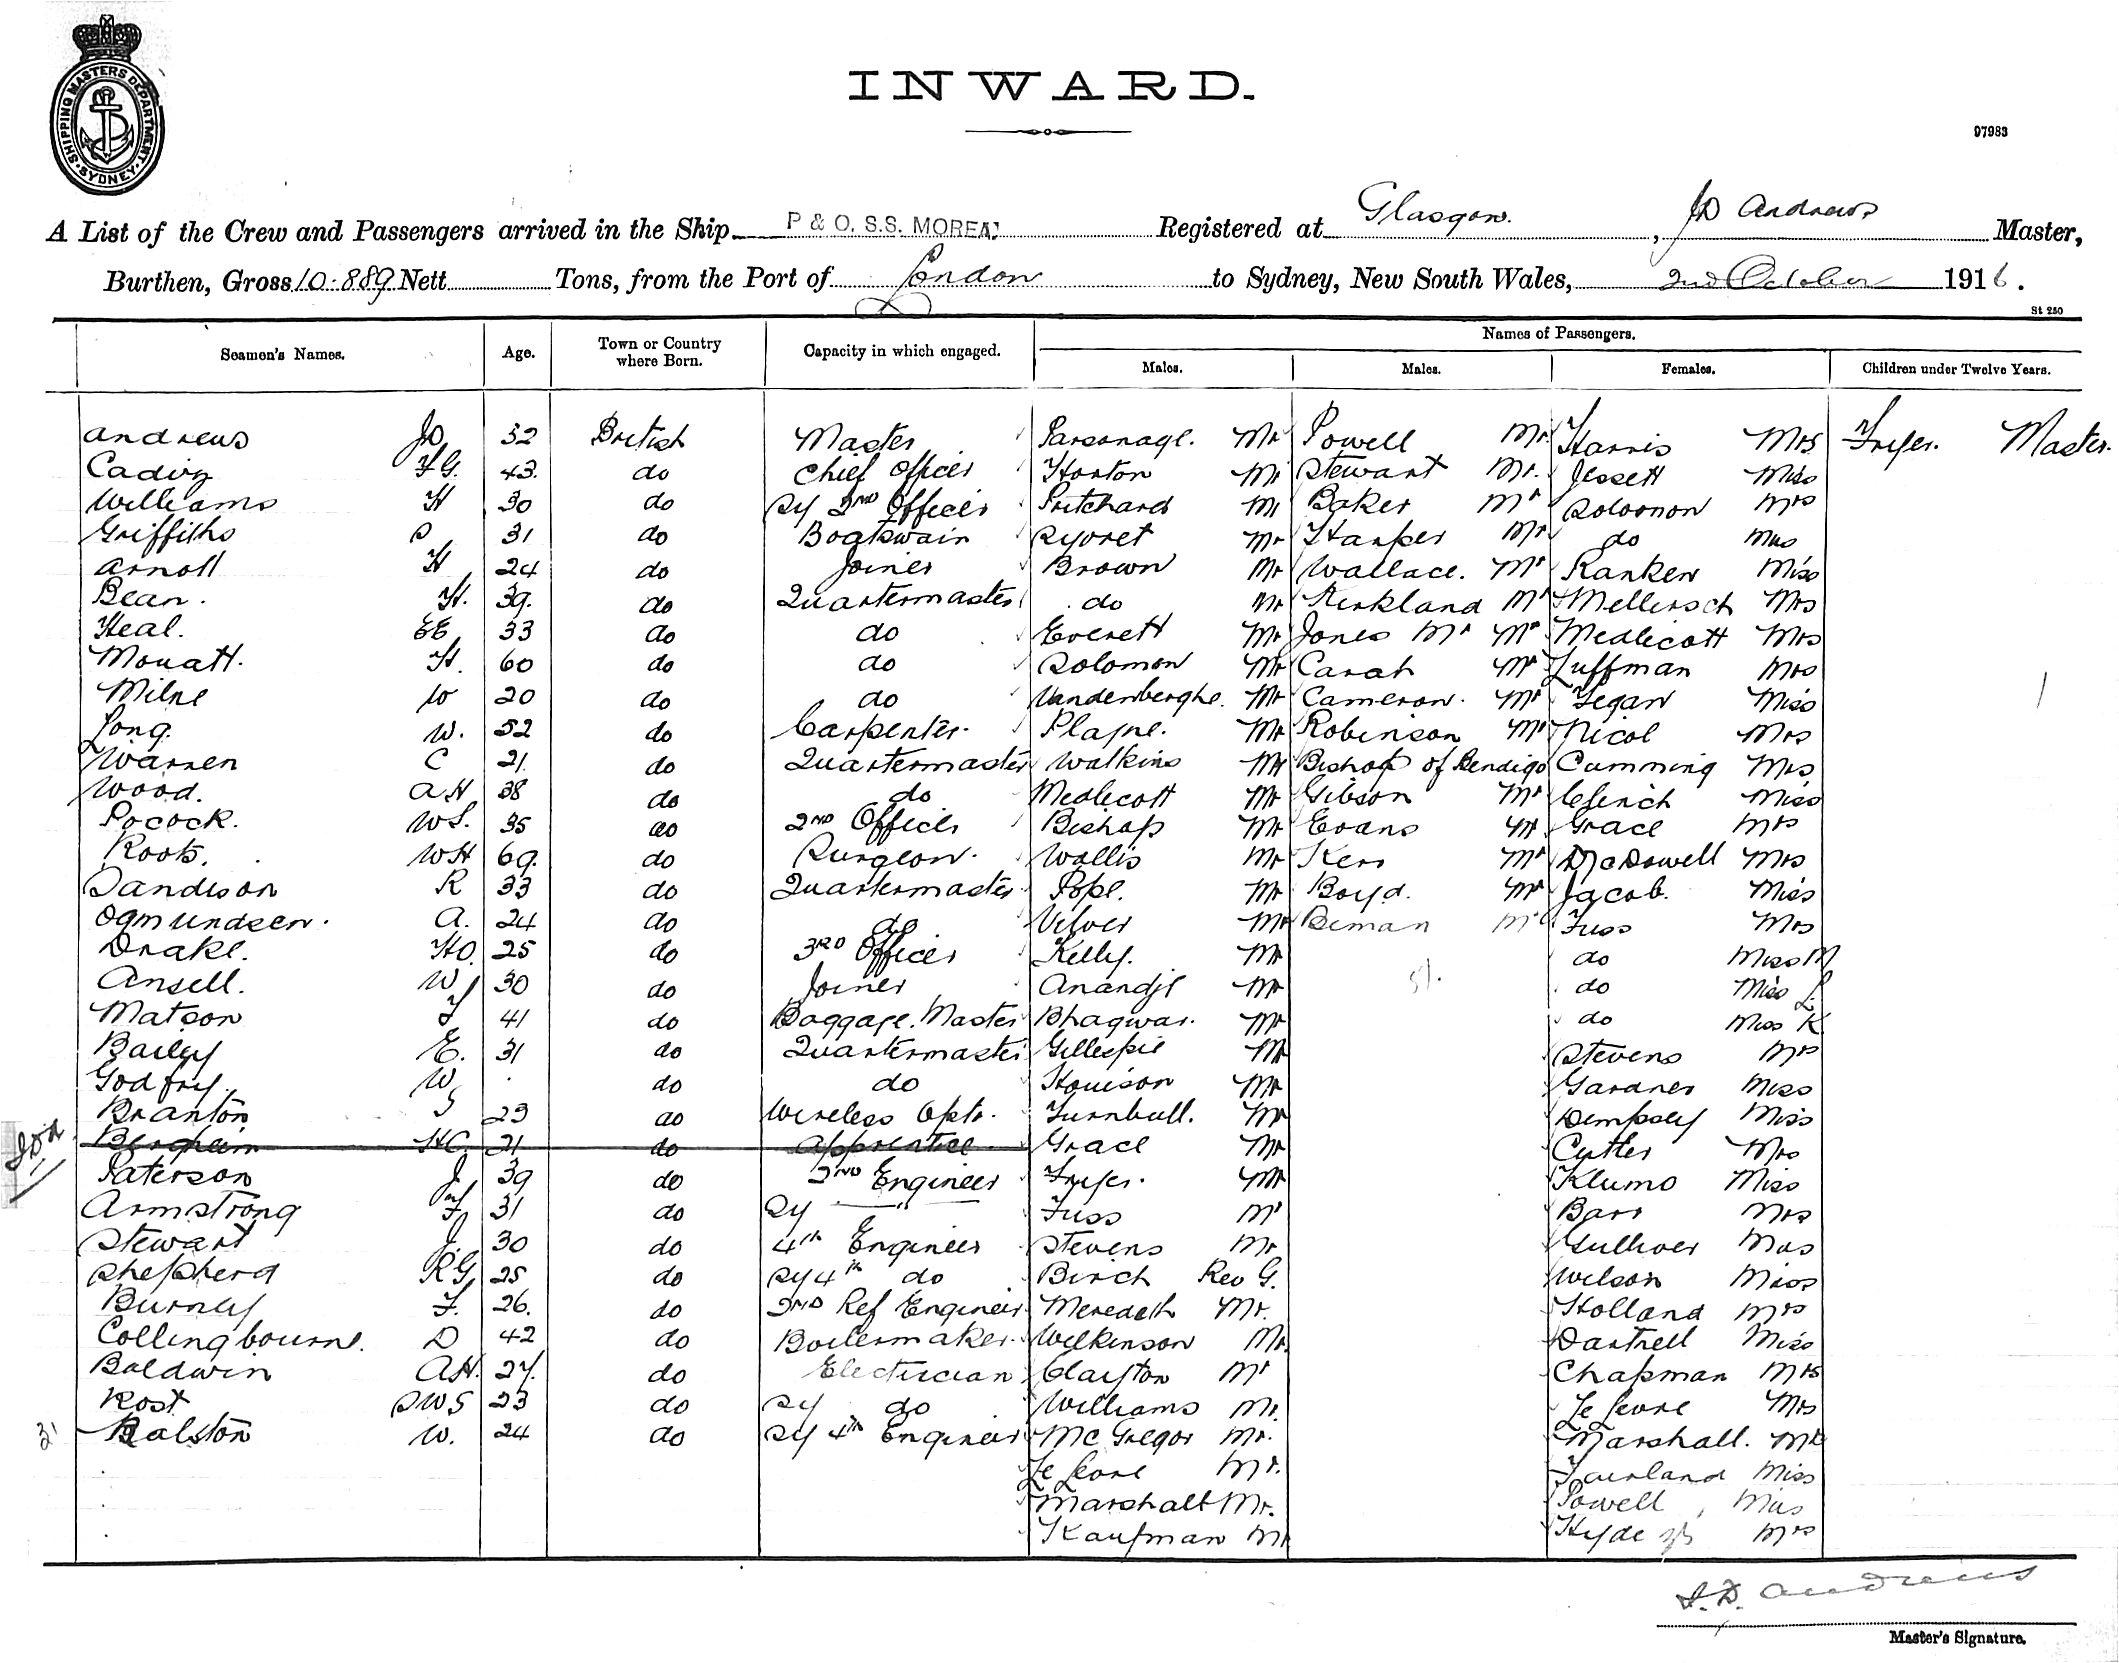 SHIPPING MASTERS DEPARTMENT SYDNEY
INWARD.
97983
A List of the Crew and Passengers arrived in the Ship P & O. S.S. MOREA. Registered at Glasgow. , JD Andrews Master,
Burthen, Gross 10.889 Nett Tons, from the Port of London to Sydney, New South Wales, 2nd October 1916.
St 250
Seamen's Names. Age. Town or Country where Born. Capacity in which engaged. Names of Passengers.
Males. Males. Females. Children under Twelve Years.
Andrews JD 32 British Master Parsonage. Mr Powell Mr Harris Mrs Fryer. Master.
Cadiz FG. 43. do Chief Officer Horton Mr Stewart Mr. Jessett Miss
Williams H 30 do Sy 2ND Officer Pritchard Mr Baker Mr Solomon Mrs
Griffiths S 31 do Boatswain Syvret Mr Harper Mr do Miss
Arnott H 24 do Joiner Brown Mr Wallace. Mr Ranken Miss
Bean. H. 39. do Quartermaster do Mr Kirkland Mr Mellersch Mrs
Heal. EE 33 do do Everett Mr Jones Mr Mr Medlicott Mrs
Mouatt. H. 60 do do Solomon Mr Carah Mr Luffman Mrs
Milne W 20 do do Vandenberghe. Mr Cameron. Mr Fegan Miss
Long. W. 52 do Carpenter. Playne. Mr Robinson Mr Nicol Mrs
Warren C 21. do Quartermaster Watkins Mr Bishop of Bendigo Cumming Mrs
Wood. AH 38 do do Medlicott Mr Gibson Mr Clinch Miss
Pocock. WS. 35 do 2ND Officer Bishop Mr Evans Mr Grace Mrs
Roots. WH 69. do Surgeon. Wallis Mr Kerr Mr McDowell Mrs
Sandison R 33 do Quartermaster Pope. Mr Boyd. Mr Jacob. Miss
Ogmundsen. A. 24 do do Vilver Mr Beman Mr Fuss Mrs
Drake. HO. 25 do 3RD Officer Kelly. Mr do Miss M
Ansell. W 30 do Joiner Anandji Mr 51. do Miss L
Matson F 41 do Baggage. Master Bhagwar. Mr do Miss K
Bailey E. 31 do Quartermaster Gillespie Mr Stevens Mrs
Godfrey. W do do Howison Mr Gardner Miss
Branton S 23 do Wireless Optr. Turnbull. Mr Dempsey Miss
HC. 21 do Apprentice Grace Mr Cutler Mrs
Paterson J 39 do 2ND Engineer Fryer. Mr Klumo Miss
Armstrong F 31 do Sy Fuss Mr Barr Mrs
Stewart J. 30 do 4th Engineer Stevens Mr Gulliver Miss
Shepherd RG 25 do Sy 4th do Birch Rev G. Wilson Miss
Burney F. 26. do 2ND Ref Engineer Meredith Mr. Holland Mrs
Collingbourne. D 42 do Boilermaker. Wilkinson Mr. Dartnell Miss
Baldwin AH. 27. do Electrician Clayton Mr Chapman Mrs
Rost SWS 23 do Sy do Williams Mr. Le Levre Mrs
31 Ralston W. 24 do Sy 4th Engineer McGregor Mr. Marshall.
Le Levre Mr. Miss
Marshall Mr. Powell Miss
Kaufman Mr Hyde Mrs
J.D. Andrews
Master's Signature.